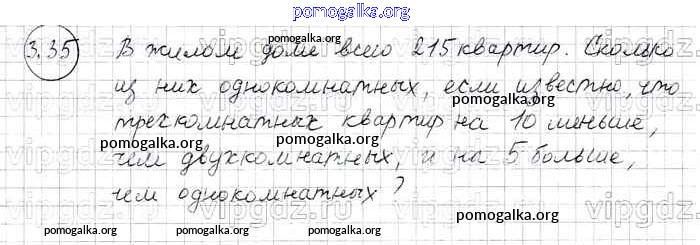 pomogalka.org
3.35 В жилом доме всего 215 квартир. Сколько
из них однокомнатных, если известно, что
pomogalka.org pomogalka.org
трехкомнатных квартир на 10 меньше,
pomogalka.org
vipgdz.ru vipgdz.ru vipgdz.ru vipgdz.ru
чем двухкомнатных, и на 5 больше,
pomogalka.org
чем однокомнатных?
pomogalka.org
vipgdz.ru vipgdz.ru vipgdz.ru vipgdz.ru
pomogalka.org